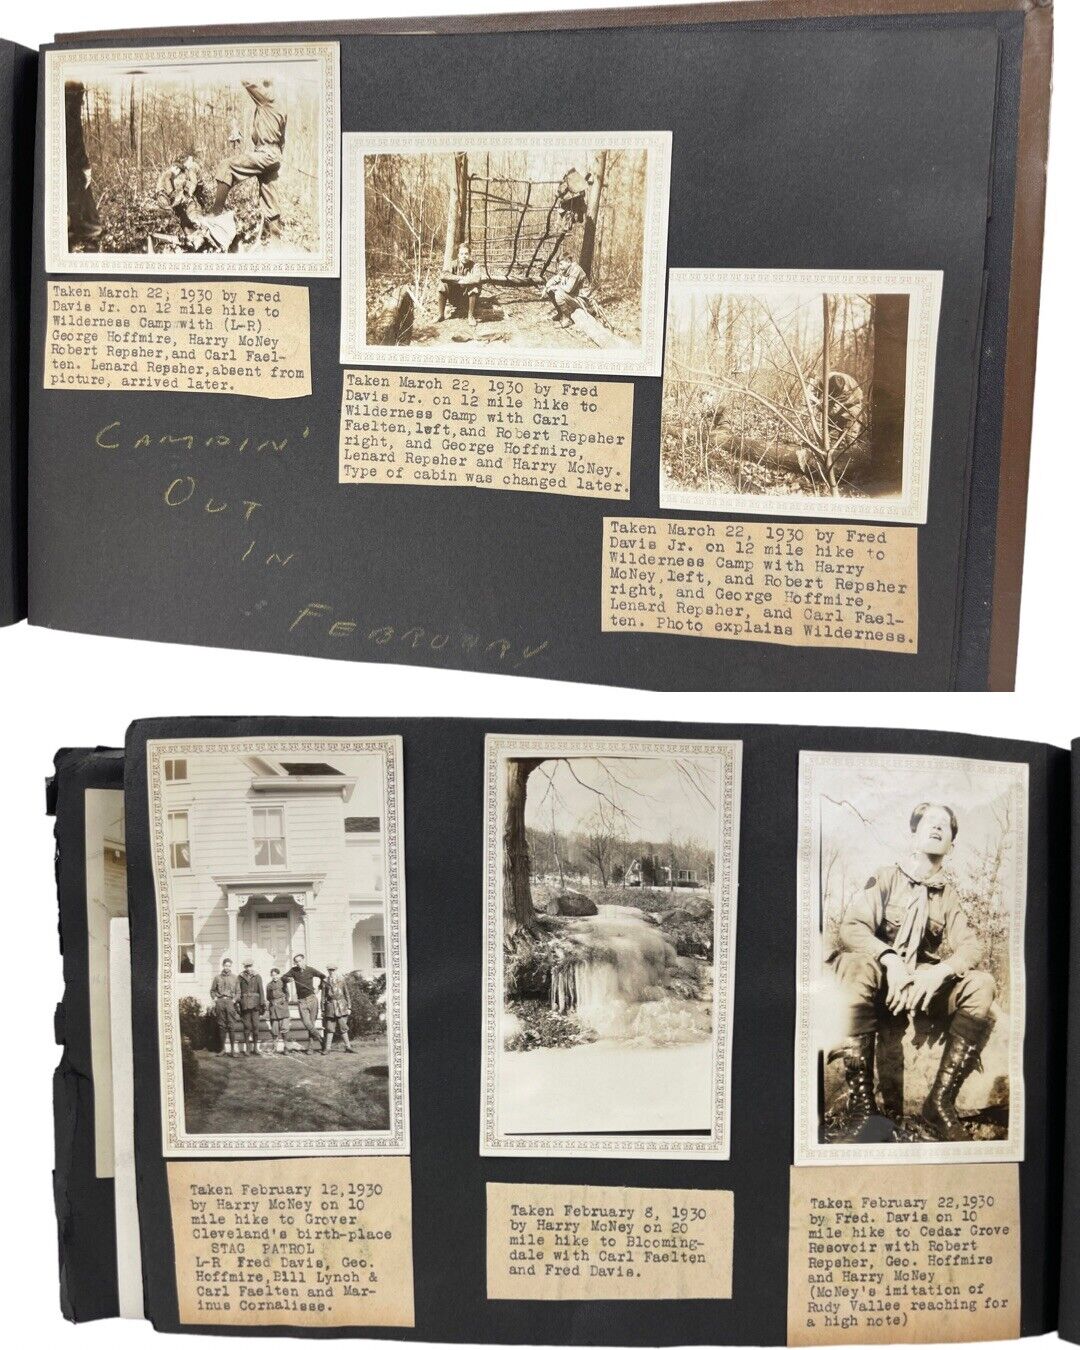 Taken March 22, 1930 by Fred
Davis Jr. on 12 mile hike to
Wilderness Camp with (L-R)
George Hoffmire, Harry McNey
Robert Repsher, and Carl Fael-
ten. Lenard Repsher, absent from
picture, arrived later.
Taken March 22, 1930 by Fred
Davis Jr. on 12 mile hike to
Wilderness Camp with Carl
Faelten, left, and Robert Repsher
right, and George Hoffmire,
Lenard Repsher and Harry McNey.
Type of cabin was changed later.
Taken March 22, 1930 by Fred
Davis Jr. on 12 mile hike to
Wilderness Camp with Harry
McNey, left, and Robert Repsher
right, and George Hoffmire,
Lenard Repsher, and Carl Fael-
ten. Photo explains Wilderness.
CAMPIN'
OUT
IN
FEBRUARY
Taken February 12, 1930
by Harry McNey on 10
mile hike to Grover
Cleveland's birth-place
STAG PATROL
L-R Fred Davis, Geo.
Hoffmire, Bill Lynch &
Carl Faelten and Mar-
inus Cornalisse.
Taken February 8, 1930
by Harry McNey on 20
mile hike to Blooming-
dale with Carl Faelten
and Fred Davis.
Taken February 22, 1930
by Fred. Davis on 10
mile hike to Cedar Grove
Resovoir with Robert
Repsher, Geo. Hoffmire
and Harry McNey
(McNey's imitation of
Rudy Vallee reaching for
a high note)